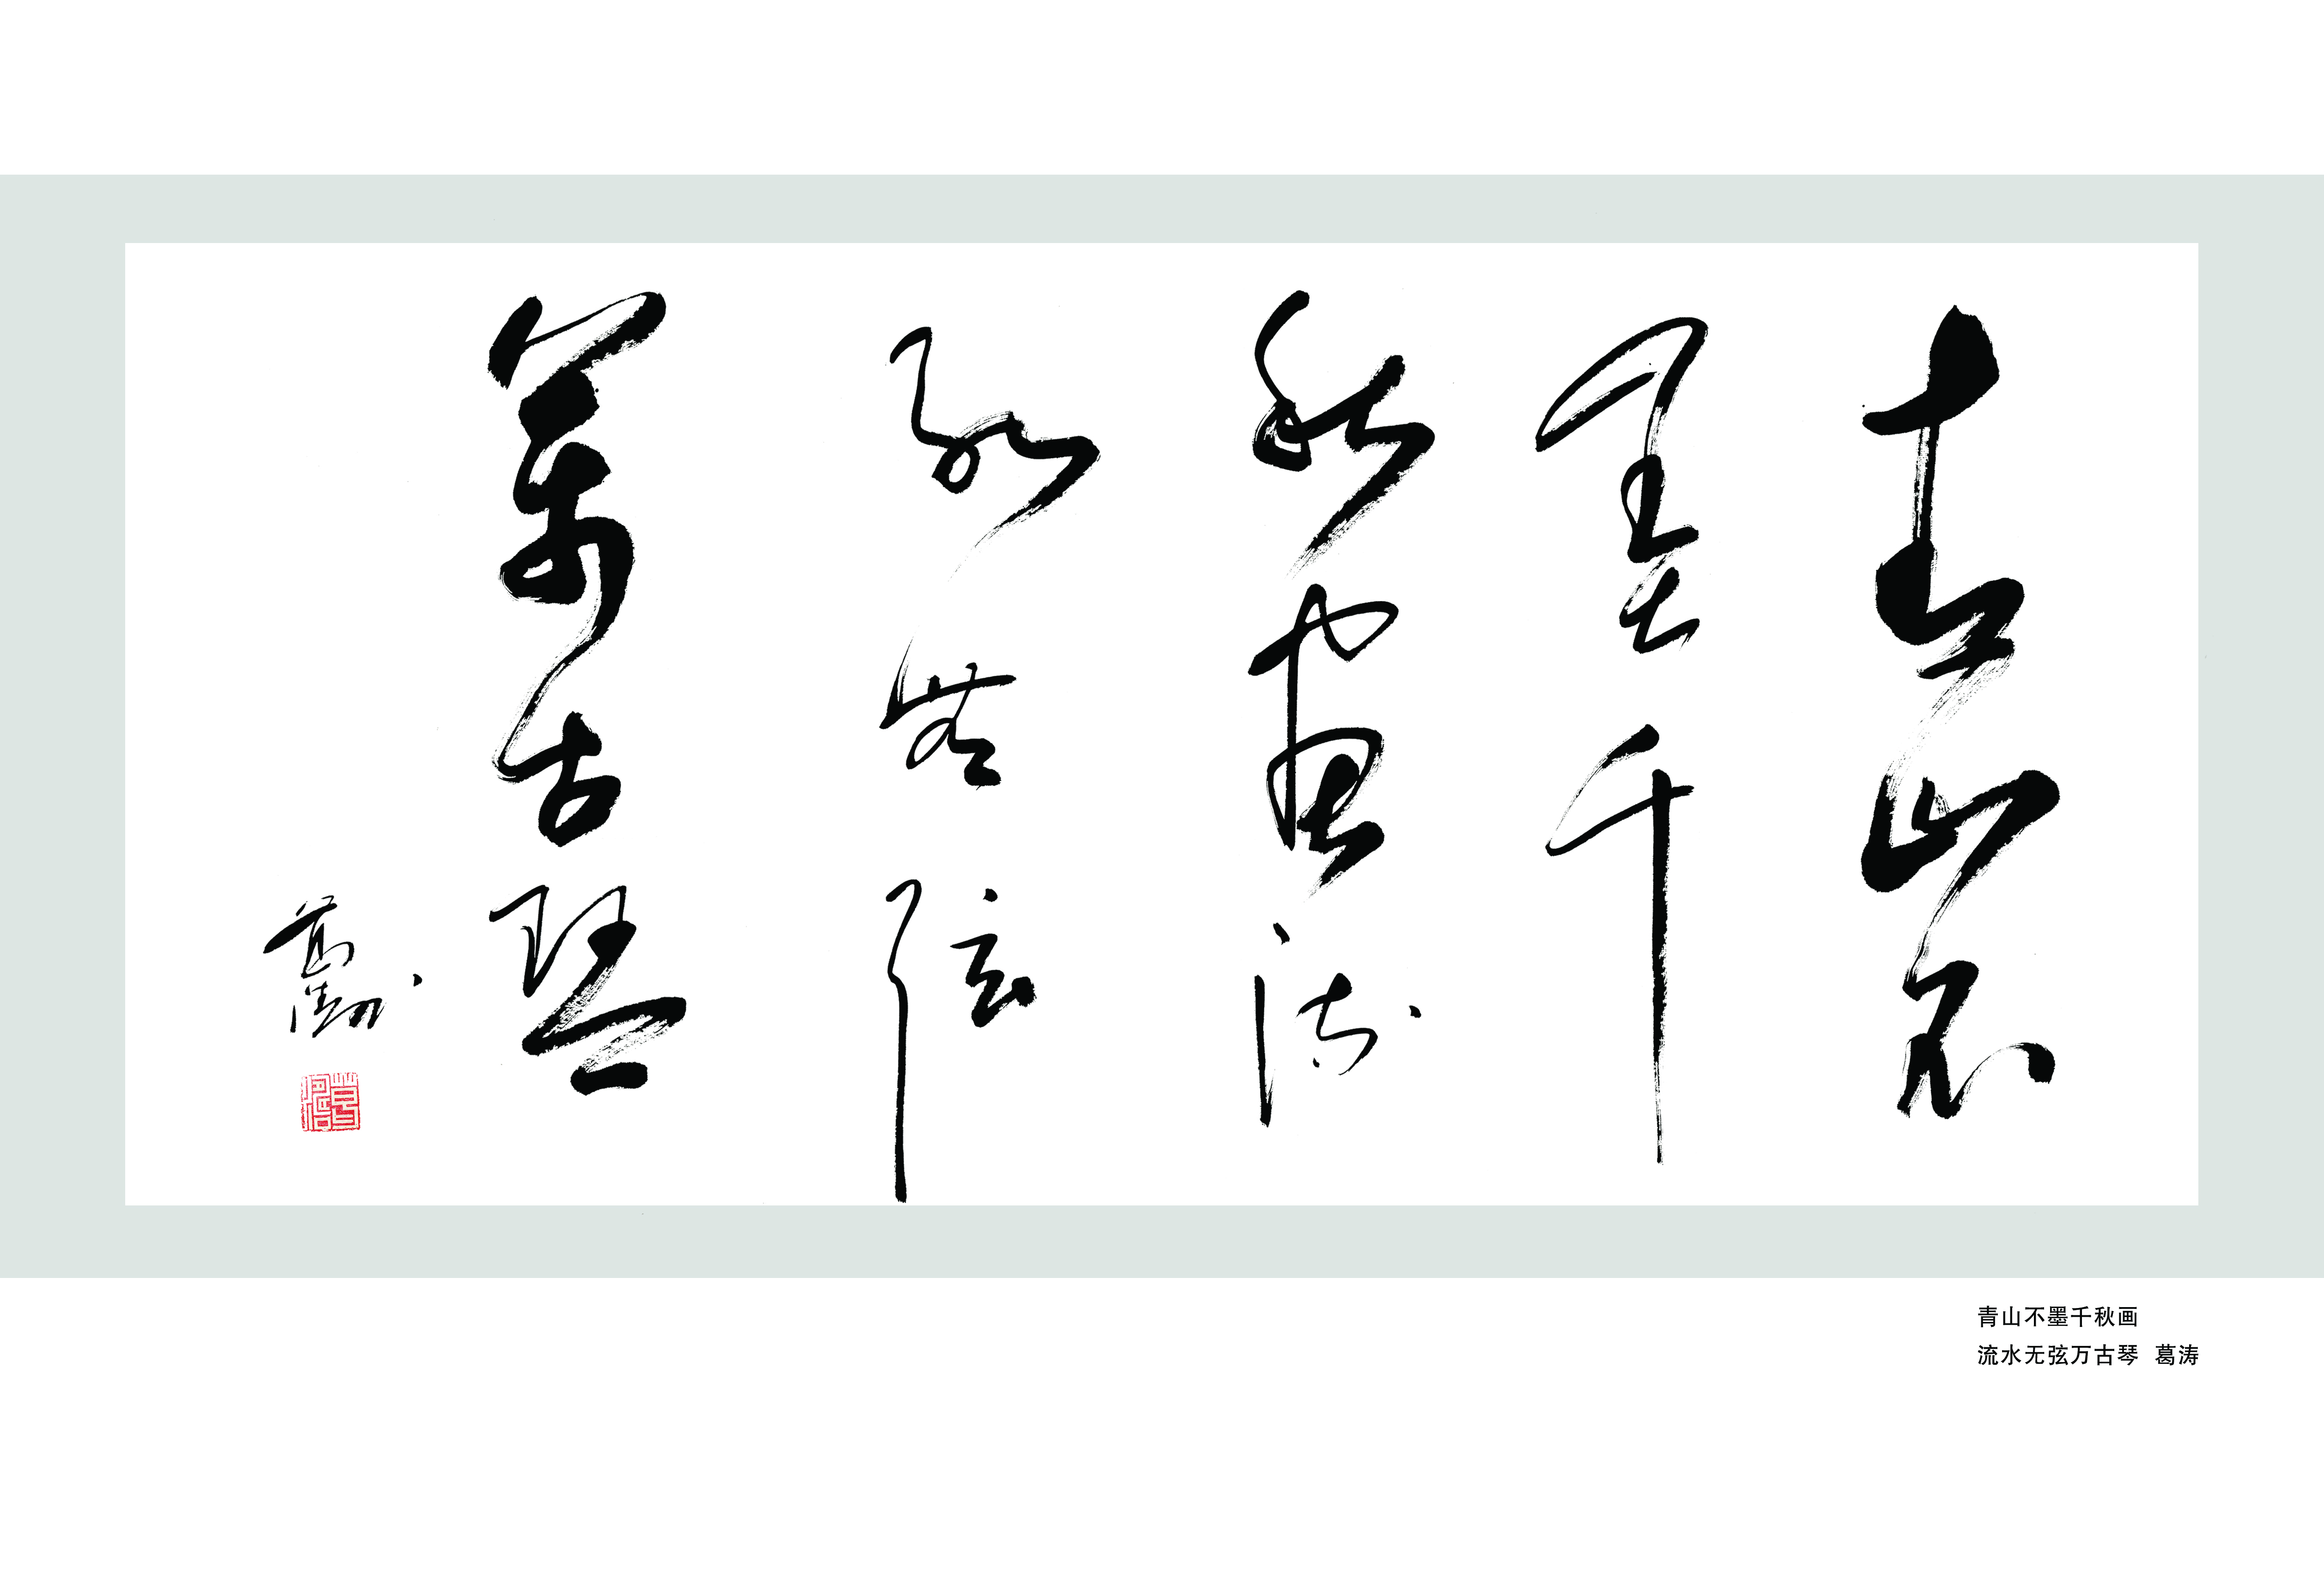 青山不
墨千
秋畫流
水無弦
萬古琴
葛涛
青山不墨千秋画
流水无弦万古琴 葛涛